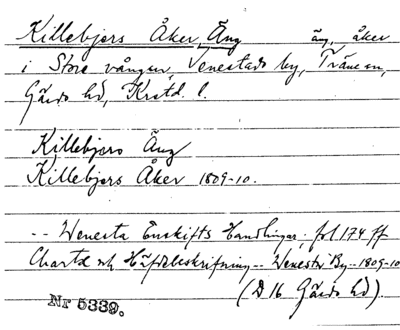 Killebjers Åker, Äng äng, åker
i Store vången, Venestads by, Träne sn,
Gärds hd, Krstd. l.
Killebjers Äng
Killebjers Åker 1809-10.
-- Wenesta Enskifts Handlingar. fol 174 ff
Charta och Häfdebeskrifning -- Wenesta By -- 1809-10
(D 16 Gärds hd).
Nr 5339.